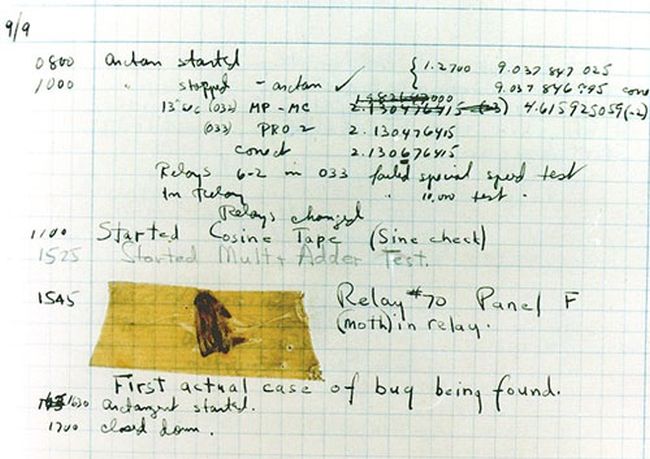 9/9
0800 arctan started { 1.2700 9.037 847 025
1000 " stopped - arctan ✓ 9.037 846 995 conv
13"uc (032) MP - MC 2.130476415 (-3) 4.615925059(-2)
(033) PRO 2 2.130476415
correct 2.130676415
Relays 6-2 in 033 failed special speed test
In Relay " 10,000 test.
Relays changed
1100 Started Cosine Tape (Sine check)
1525 Started Mult+ Adder Test.
1545 Relay #70 Panel F
(moth) in relay.
First actual case of bug being found.
1630 arctangent started.
1700 closed down.